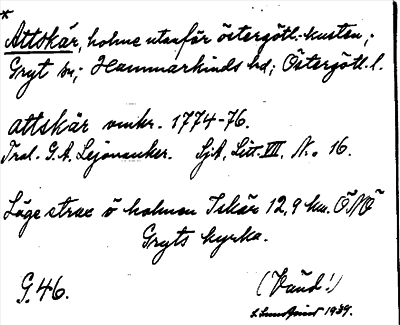 *
Attskär, holme utanför östergötl.-kusten;
Gryt sn; Hammarkinds hd; Östergötl. l.
attskär omkr. 1774-76.
Tral. G. A. Lejonanker. SjA, Litt. VII, N:o 16.
Läge strax ö holmen Iskär 12,9 km. ÖNÖ
Gryts kyrka.
G. 46.
(Vänd!)
1939.